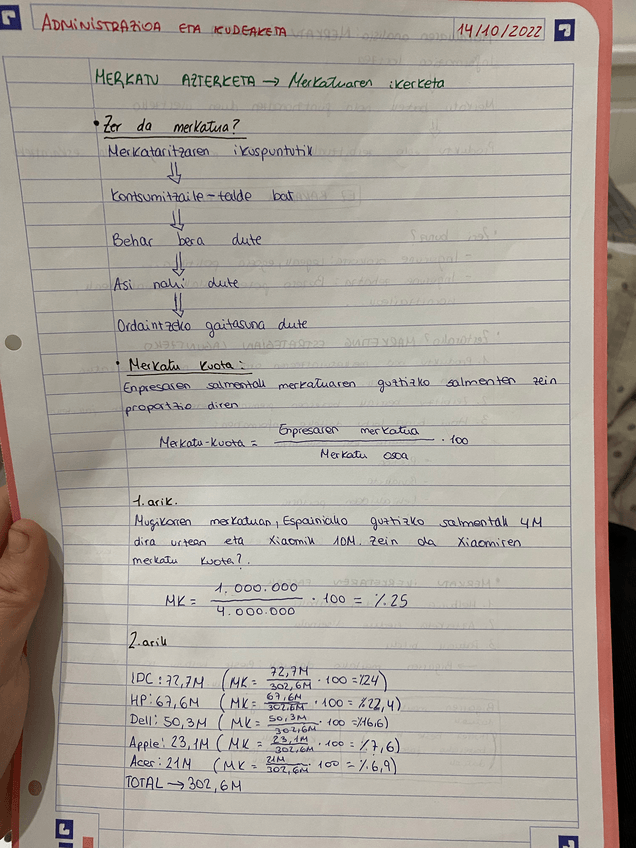 ADMINISTRAZIOA ETA KUDEAKETA
14/10/2022
MERKATU AZTERKETA → Merkatuaren ikerketa
• Zer da merkatua?
Merkataritzaren ikuspuntutik
⇓
Kontsumitzaile-talde bat
⇓
Behar bera dute
⇓
Asi nahi dute
⇓
Ordaintzeko gaitasuna dute
• Merkatu kuota:
Enpresaren salmentak merkatuaren guztizko salmenten zein
proportzio diren
Merkatu-kuota = Enpresaren merkatua / Merkatu osoa · 100
1. arik.
Mugikorren merkatuan, Espainiako guztizko salmentak 4M
dira urtean eta Xiaomik 10M. Zein da Xiaomiren
merkatu kuota?
MK = 1.000.000 / 4.000.000 · 100 = %25
2. arik
IDC: 72,7M (MK = 72,7M / 302,6M · 100 = %24)
HP: 67,6M (MK = 67,6M / 302,6M · 100 = %22,4)
Dell: 50,3M (MK = 50,3M / 302,6M · 100 = %16,6)
Apple: 23,1M (MK = 23,1M / 302,6M · 100 = %7,6)
Acer: 21M (MK = 21M / 302,6M · 100 = %6,9)
TOTAL → 302,6M